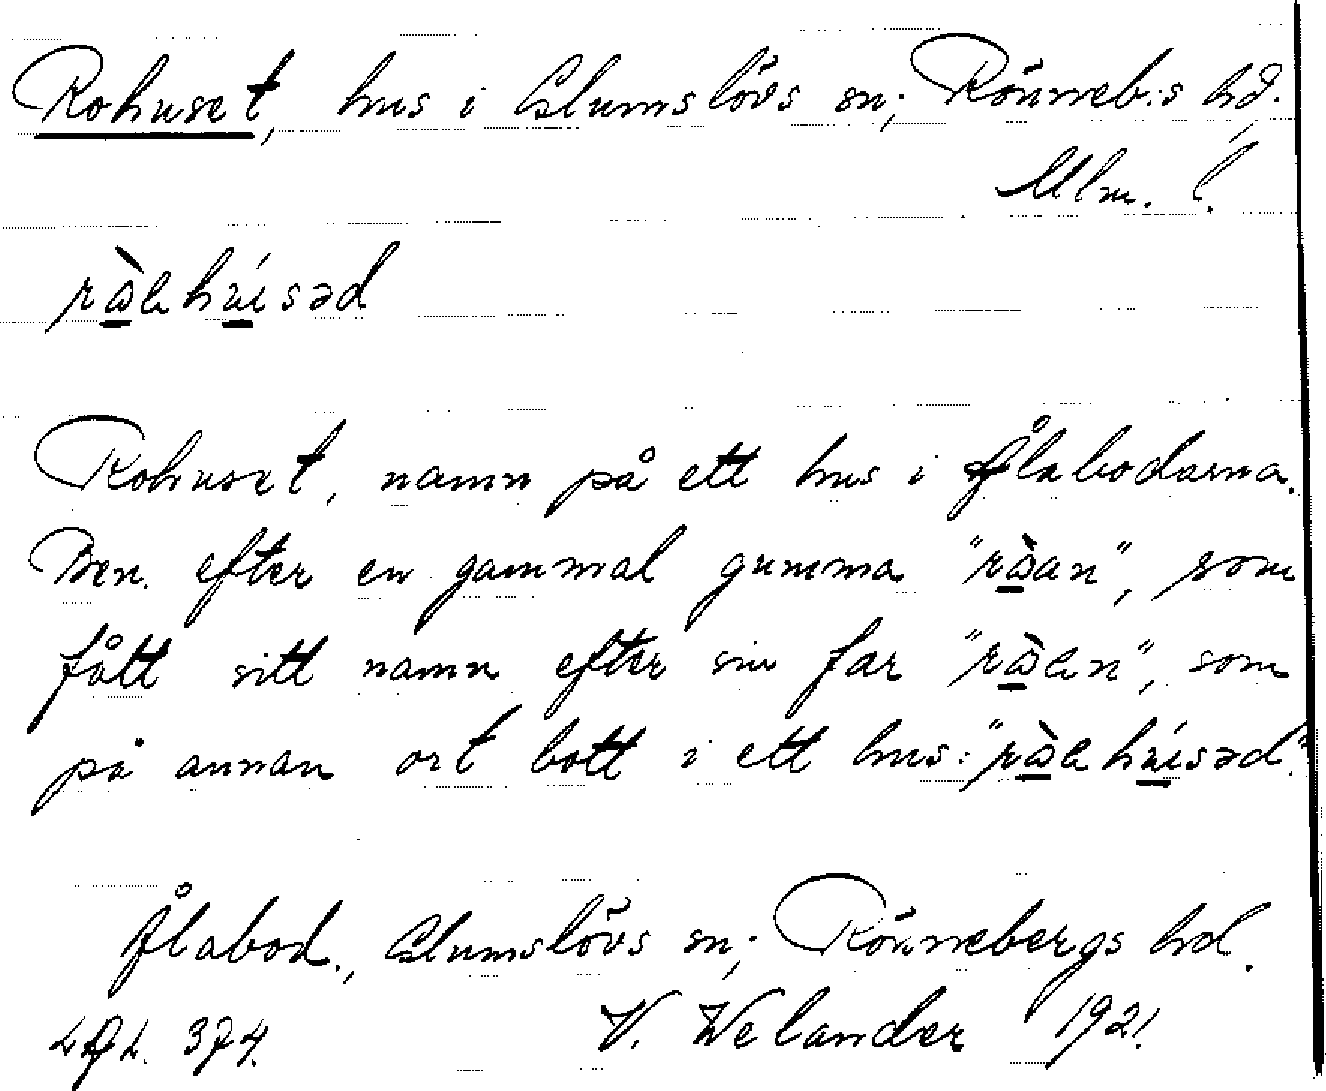 Rohuset, hus i Glumslövs sn; Rönneb:s hd.
Mlm. l.
Rohuset, namn på ett hus i Ålabodarna.
Ben. efter en gammal gumma "ràan", som
fått sitt namn efter sin far "ràen", som
på annan ort bott i ett hus:
Ålabod., Glumslövs sn; Rönnebergs hd.
374. V. Welander 1921.